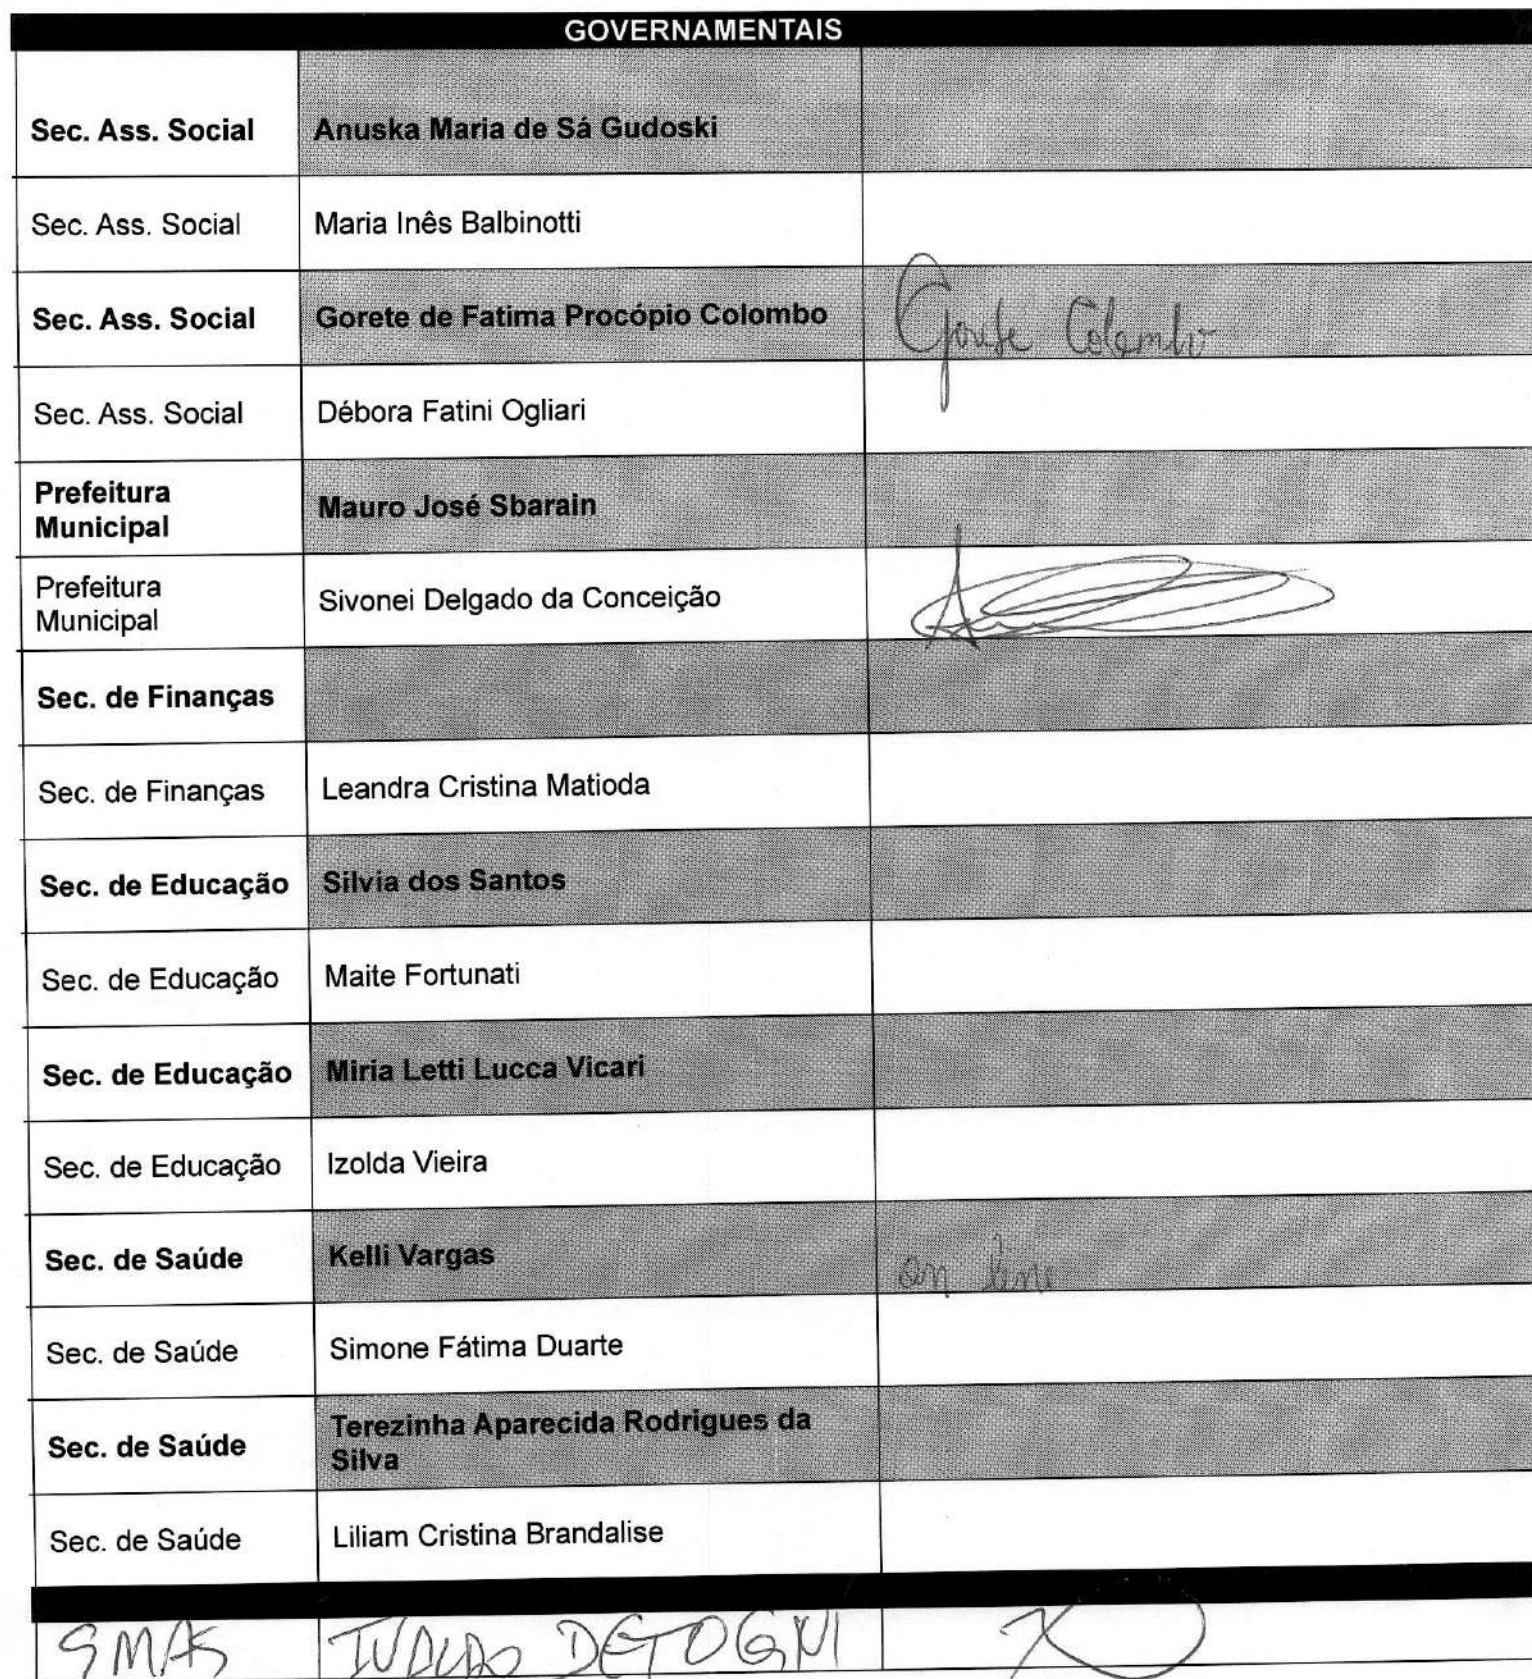 GOVERNAMENTAIS
Sec. Ass. Social Anuska Maria de Sá Gudoski
Sec. Ass. Social Maria Inês Balbinotti
Sec. Ass. Social Gorete de Fatima Procópio Colombo Gorete Colombo
Sec. Ass. Social Débora Fatini Ogliari
Prefeitura
Municipal Mauro José Sbarain
Prefeitura
Municipal Sivonei Delgado da Conceição
Sec. de Finanças
Sec. de Finanças Leandra Cristina Matioda
Sec. de Educação Silvia dos Santos
Sec. de Educação Maite Fortunati
Sec. de Educação Miria Letti Lucca Vicari
Sec. de Educação Izolda Vieira
Sec. de Saúde Kelli Vargas on line
Sec. de Saúde Simone Fátima Duarte
Sec. de Saúde Terezinha Aparecida Rodrigues da
Silva
Sec. de Saúde Liliam Cristina Brandalise
SMAS DETOGNI